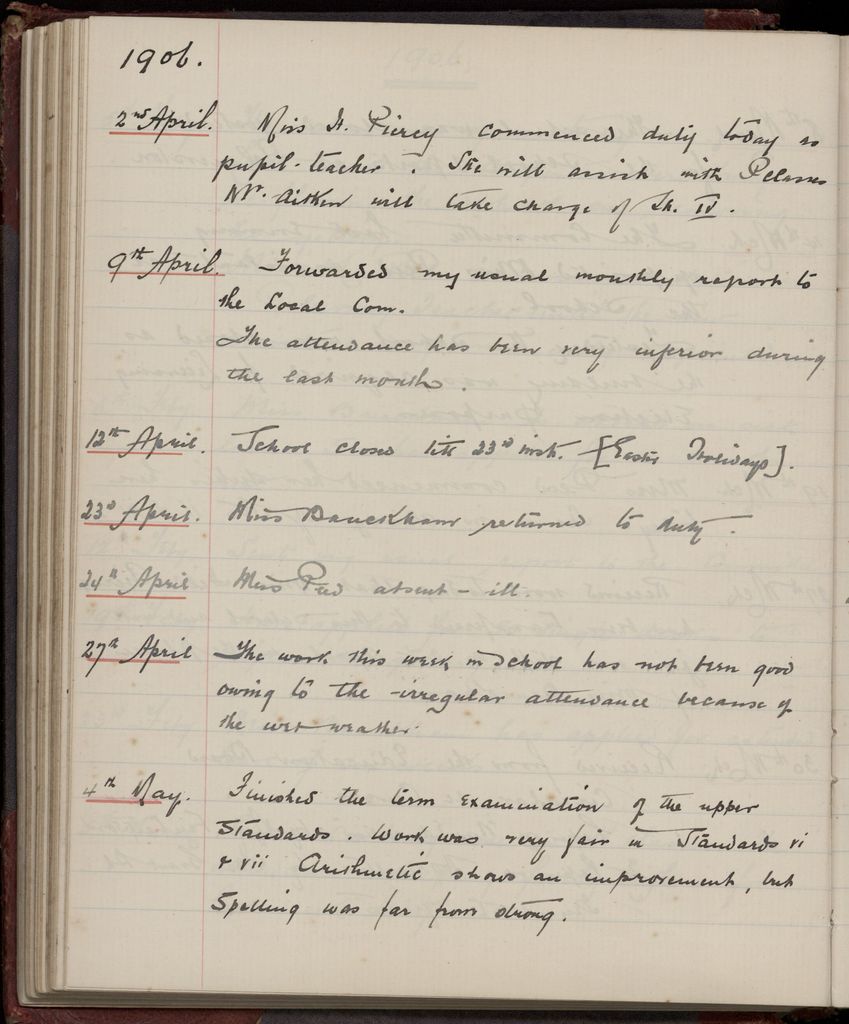 1906.
2nd April. Miss H. Piercy commenced duty today as
pupil-teacher. She will assist with P classes
Mr. Aitken will take charge of St. IV.
9th April. Forwarded my usual monthly report to
the Local Com.
The attendance has been very inferior during
the last month.
12th April. School closed till 23rd inst. [Easter Holidays].
23rd April. Miss returned to duty.
24th April Miss absent - ill.
27th April The work this week in School has not been good
owing to the irregular attendance because of
the wet weather.
4th May. Finished the term examination of the upper
Standards. Work was very fair in Standards vi
& vii Arithmetic shows an improvement, but
Spelling was far from strong.